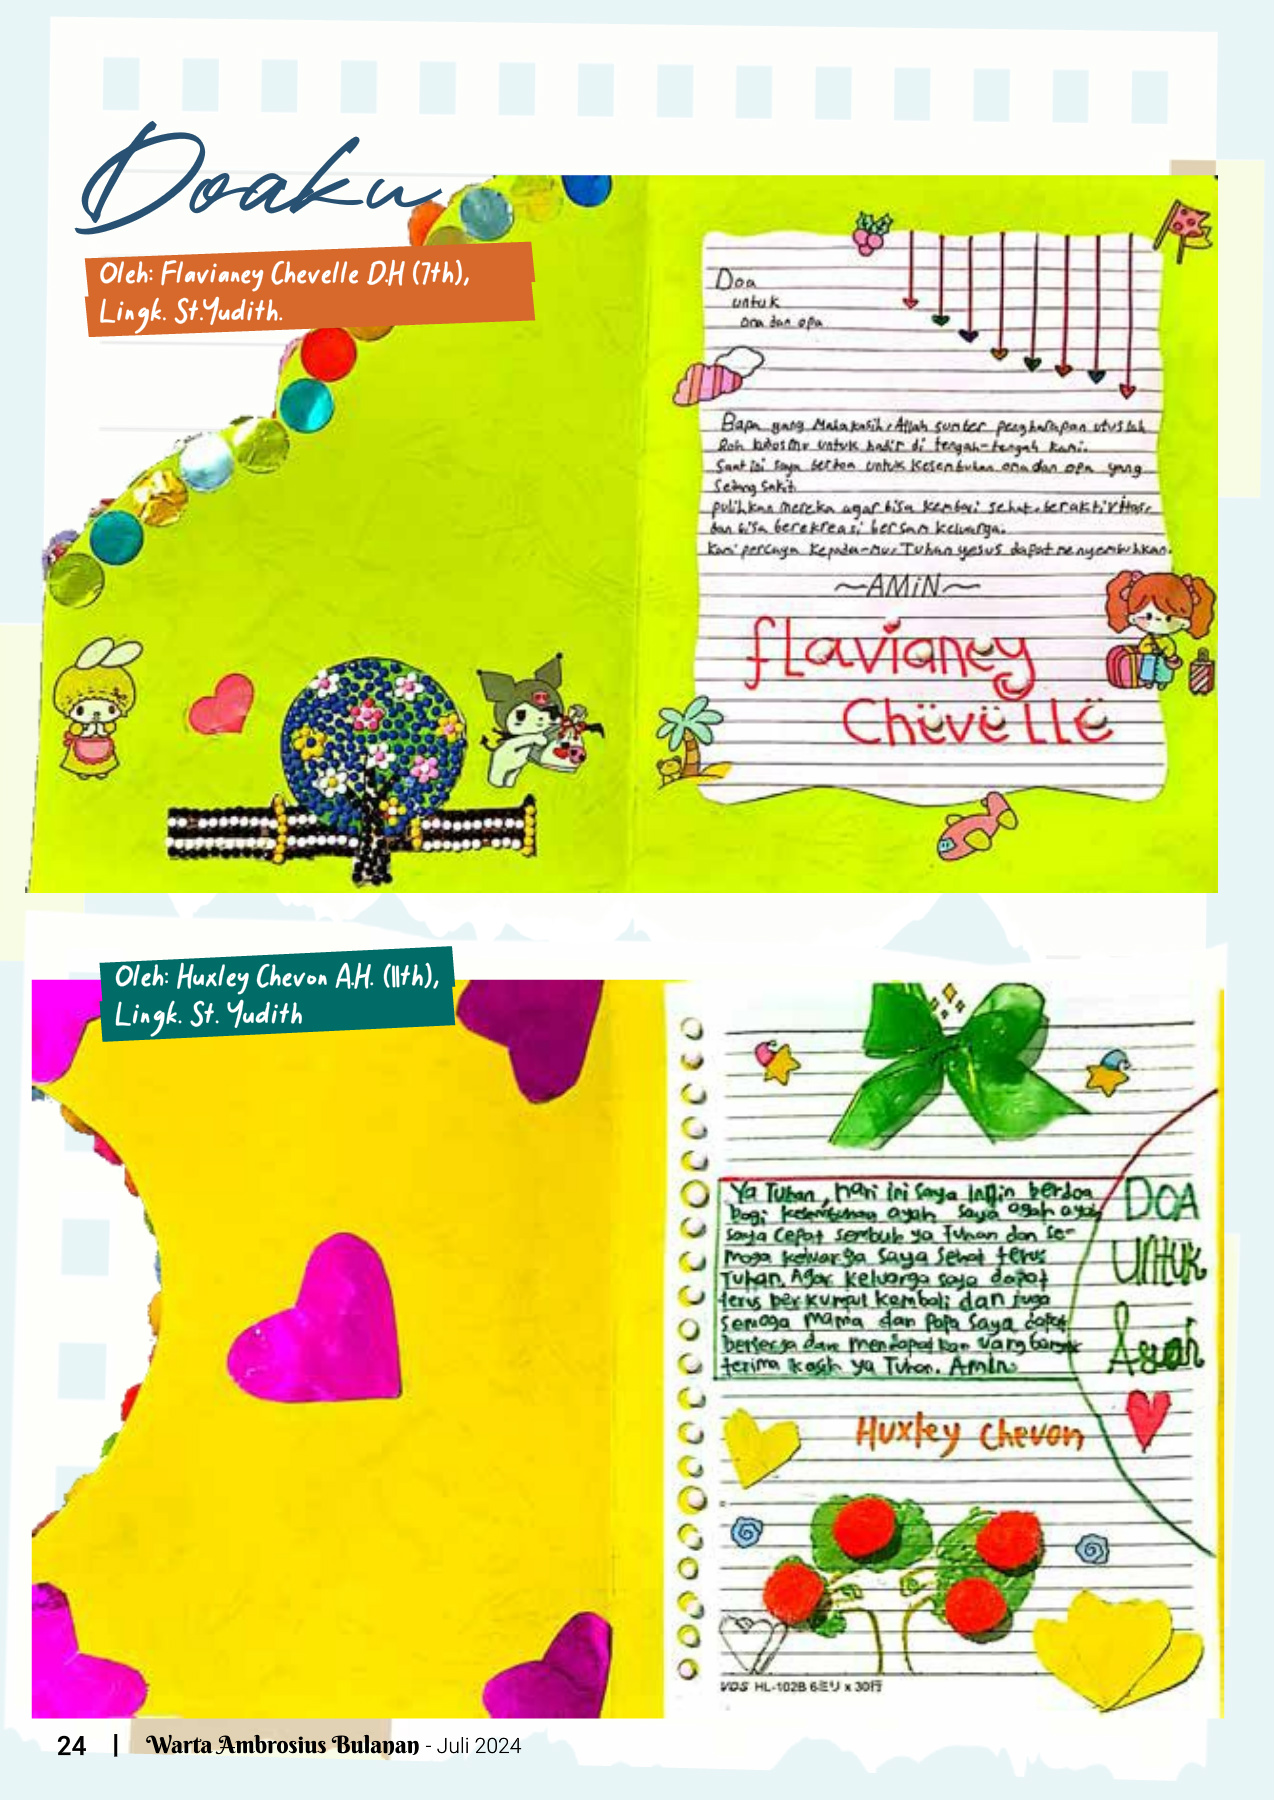 Doaku
Oleh: Flavianey Chevelle D.H (7th),
Lingk. St.Yudith.
Doa
untuk
oma dan opa
Bapa yang Mahakasih, Allah sumber pengharapan utuslah
Roh kudosMu untuk hadir di tengah-tengah kami.
Saat ini saya berdoa untuk kesembuhan oma dan opa yang
sedang sakit
pulihkan mereka agar bisa kembali sehat, beraktivitas,
dan bisa berekreasi bersam keluarga.
Kami percaya kepada-mu, Tuhan yesus dapat menyembuhkan.
~AMiN~
flavianey
Chëvëllë
Oleh: Huxley Chevon A.H. (11th),
Lingk. St. Yudith
Ya Tuhan, hari ini saya ingin berdoa
bagi kesembuhan ayah saya agah ayah
saya cepat sembuh ya Tuhan dan se-
moga keluarga saya sehat terus
Tuhan. Agar keluarga saya dapat
terus berkumpul kembali dan juga
semoga mama dan papa saya dapat
bekerja dan mendapatkan uang banyak
terima kasih ya Tuhan. Amin
DOA
UNTUK
Ayah
Huxley Chevon
VDS HL-102B 6ミリ x 30行
24 | Warta Ambrosius Bulanan - Juli 2024